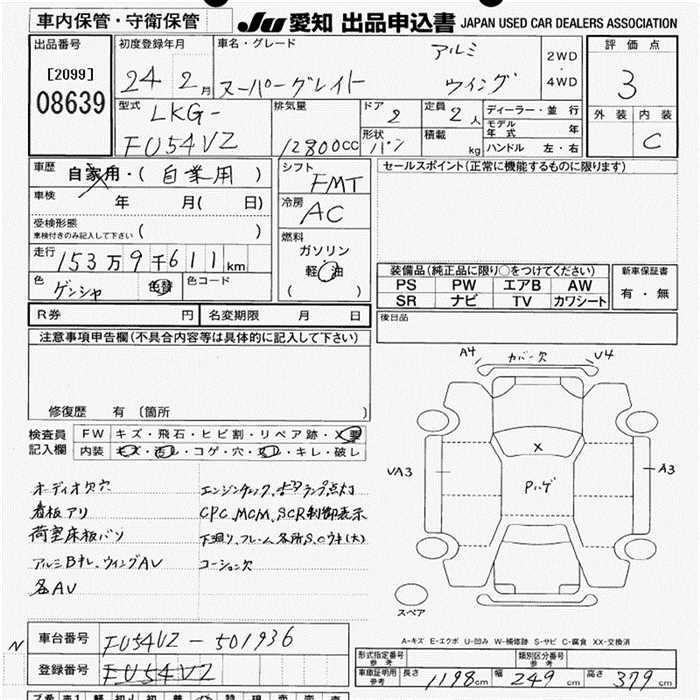 車内保管・守衛保管
JU 愛知 出品申込書 JAPAN USED CAR DEALERS ASSOCIATION
出品番号
[2099]
08639
初度登録年月
24 2月
車名・グレード
スーパーグレイト
アルミ
ウイング
2WD
・
4WD
評価点
3
外装 内装
C
型式
LKG-
FU54VZ
排気量
12800CC
ドア
2
形状
バン
定員
2人
積載
kg
ディーラー・並行
モデル年式 年
ハンドル 左・右
車歴
自家用・( 自業用 )
車検
年 月( 日)
受検形態
車検付きのみ記入して下さい ( )
走行
153万9千611km
色
ゲンシャ
色替
色コード
シフト
FMT
冷房
AC
燃料
ガソリン
軽油
( )
セールスポイント(正常に機能するものに限ります)
装備品(純正品に限り○をつけてください)
PS PW エアB AW
SR ナビ TV カワシート
新車保証書
有・無
後日品
R券 円 名変期限 月 日
注意事項申告欄(不具合内容等は具体的に記入して下さい)
修復歴 有 〔箇所 〕
検査員
記入欄
FW キズ・飛石・ヒビ割・リペア跡・X要
内装 キズ・汚レ・コゲ・穴・スレ・キレ・破レ
オーディオ欠穴
看板アリ
荷室床板バツ
アルミBキレ、ウイングAV
各AV
エンジンチェック、ランプ点灯
CPC、MCM、SCR制御表示
下廻り、フレーム、各所S、Cウキ(大)
コーション欠
A4 カバー欠 U4
X
Pハゲ
VA3
A3
スペア
A-キズ E-エクボ U-凹み W-補修跡 S-サビ C-腐食 XX-交換済
N
車台番号 FU54VZ-501936
登録番号 FU54VZ
形式指定番号
参考
類別区分番号
参考
車庫証明用
参考
長さ 1198cm 幅 249cm 高さ 379cm